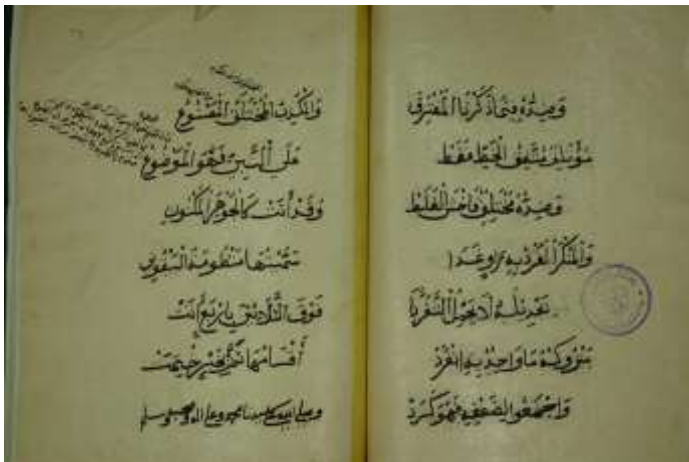 وضده فيما ذكرنا المفترق
مؤتلف متفق الخط فقط
وضده مختلف فاخش الغلط
والمنكر الفرد به راو غدا
تعديله لا يحمل التفردا
متروكه ما واحد به انفرد
واجمعوا لضعفه فهو كرد
والكذب المختلق المصنوع
على النبي فهو الموضوع
وقد أتت كالجوهر المكنون
سميتها منظومة البيقوني
فوق الثلاثين باربع أتت
أقسامها ثم بخير ختمت
وصلى الله على سيدنا محمد وعلى اله وصحبه وسلم